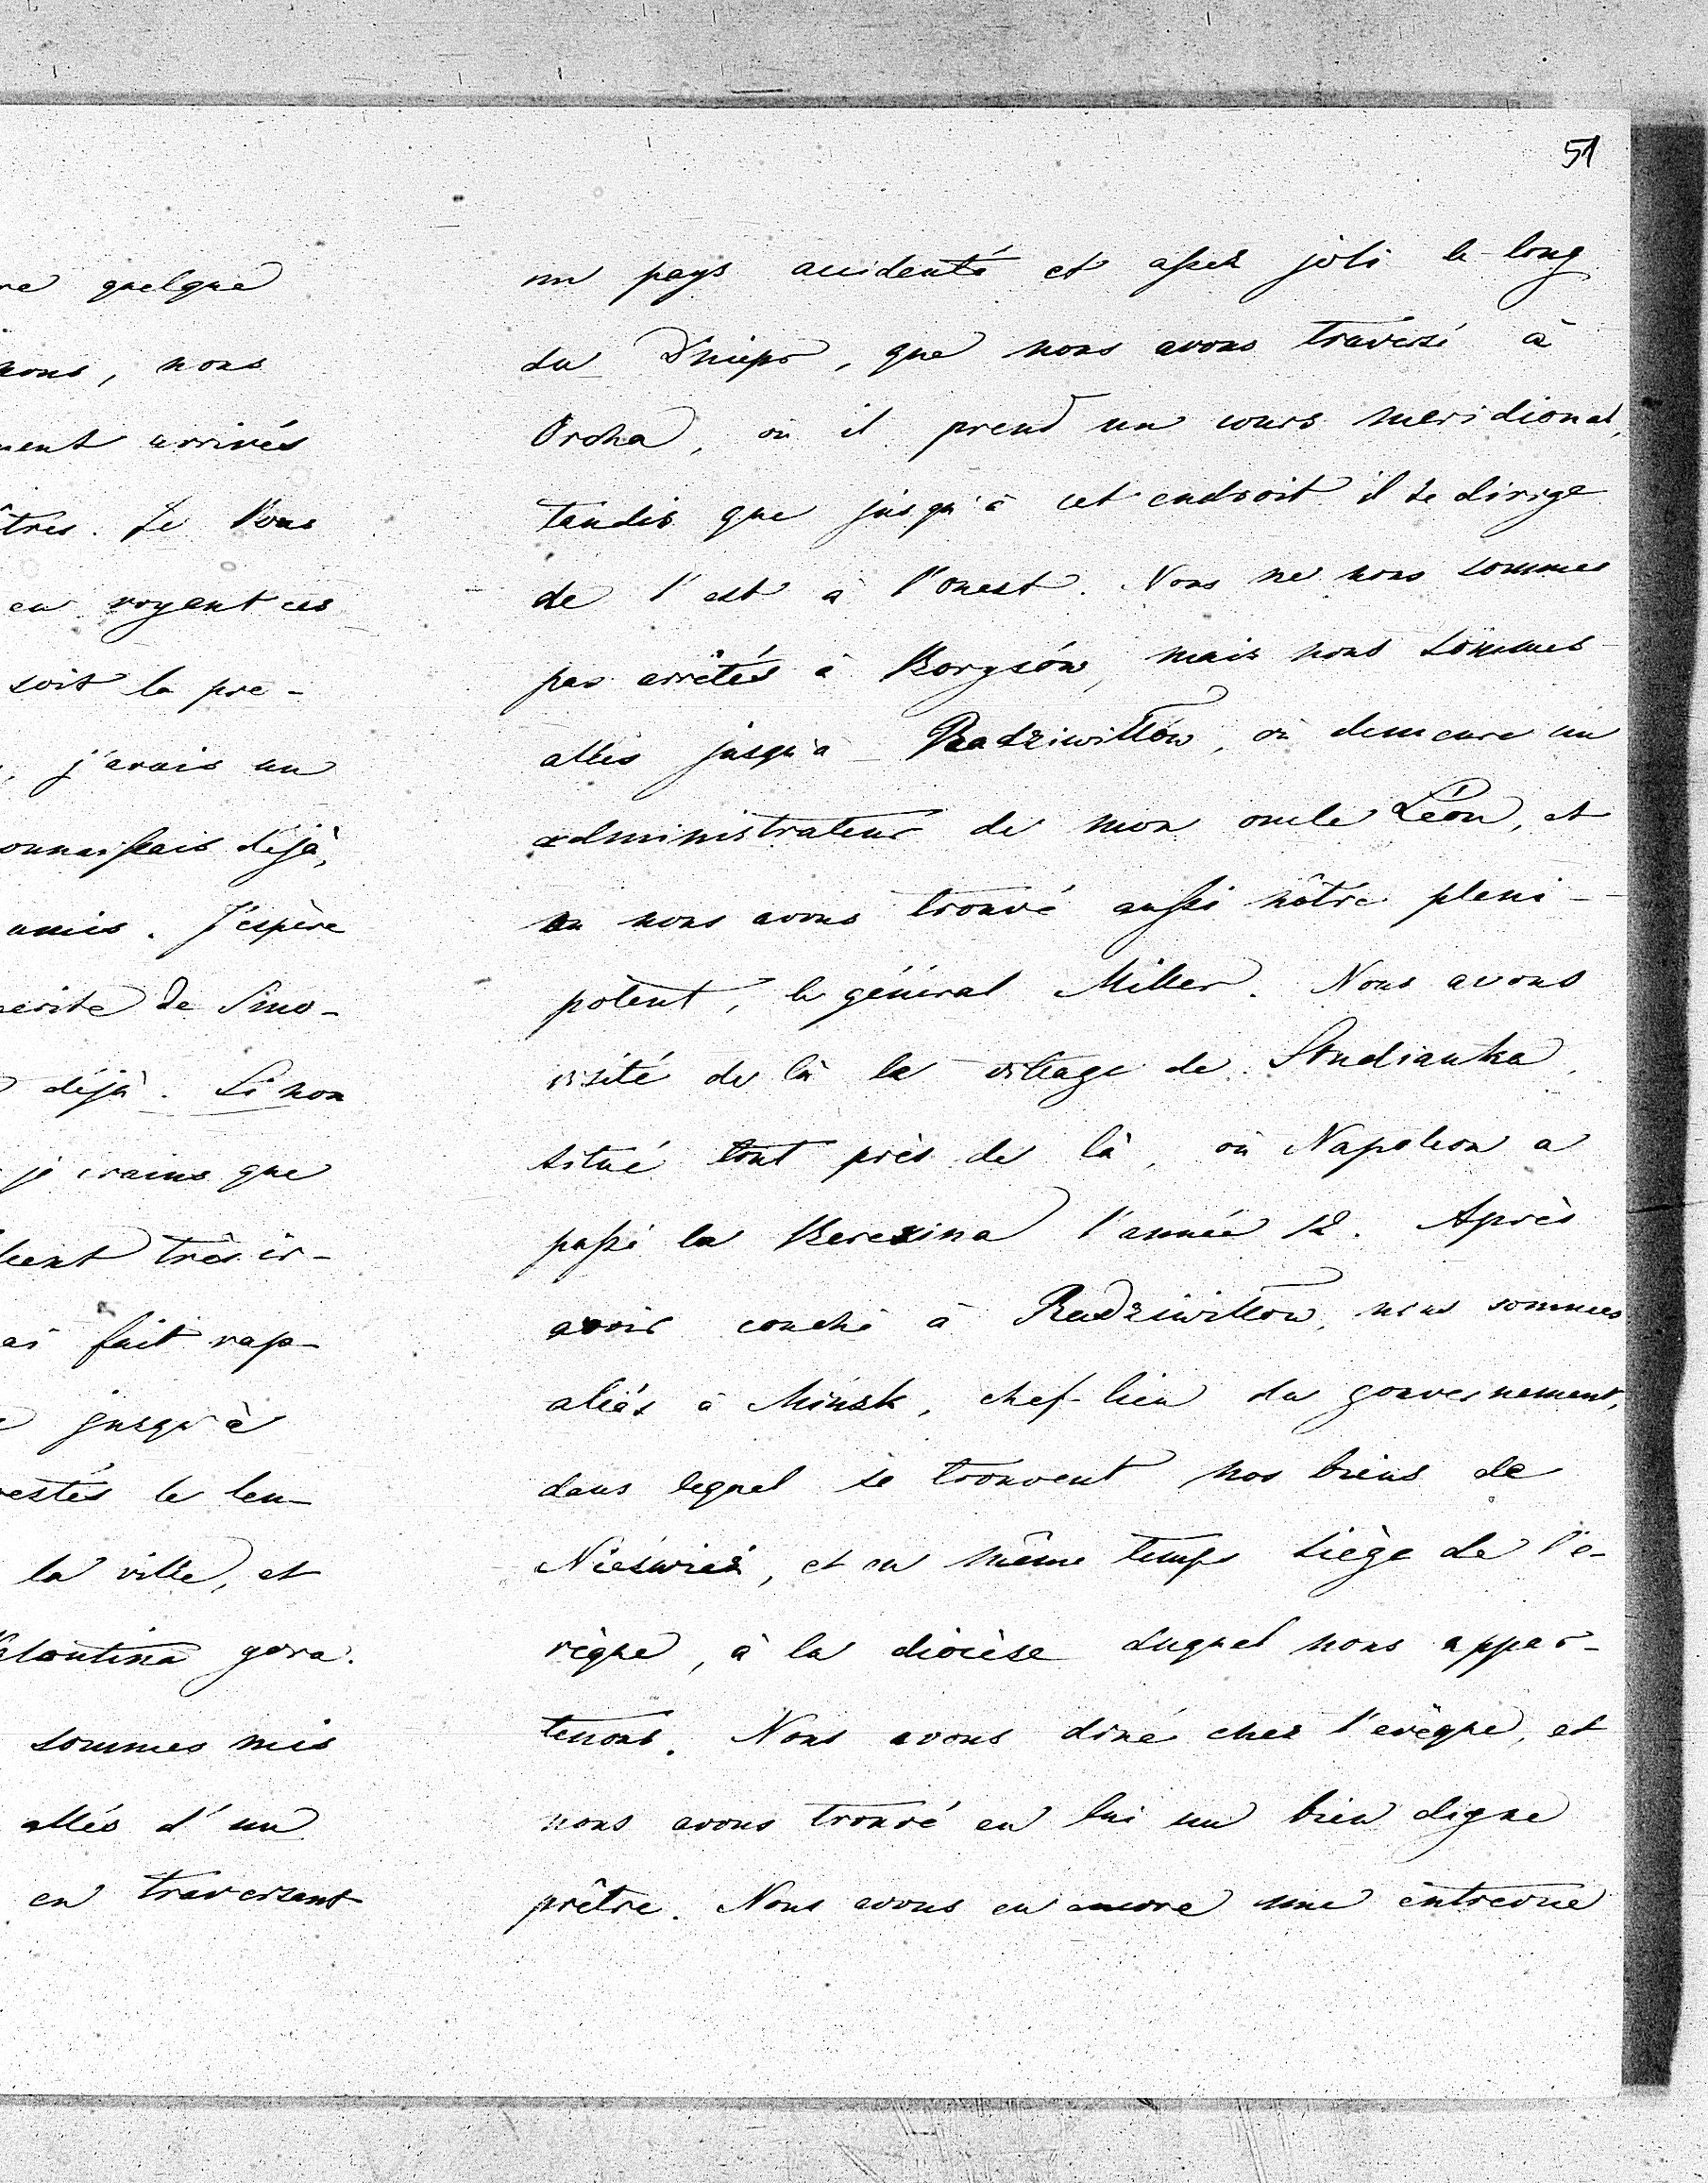 51
re quelque
nous, nous
ment arrivés
îtres. Je Vous
en voyant ces
soit la pre-
, j'avais un
onnaissais déjà,
amis. J'espère
de Smo-
déjà. Si non
je crains que
très ir-
ai fait rap-
jusqu'à
restés le len-
la ville, et
gora.
sommes mis
allés d'un
en traversant
un pays accidenté et assez joli le long
du Dniepr, que nous avons traversé à
Orcha, où il prend un cours meridional,
tandis que jusqu'à cet endroit il se dirige
de l'est à l'ouest. Nous ne nous sommes
pas arrêtés à Borysów, mais nous sommes
allés jusqu'à Radziwiłłów, où demeure un
administrateur de mon oncle Léon, et
où nous avons trouvé aussi nôtre pleni-
potent, le général Miller. Nous avons
visité de là le village de Studianka,
situé tout près de là, où Napoleon a
passé la Berezina l'année 12. Après
avoir couché à Radziwiłłow, nous sommes
allés à Mińsk, chef-lieu du gouvernement,
dans lequel se trouvent nos biens de
Nieśwież, et en même temps siège de l'e-
vèque, à la diocèse duquel nous appar-
tenons. Nous avons diné chez l'evèque, et
nous avons trouvé en lui un bien digne
prêtre. Nous avons eu encore une entrevue